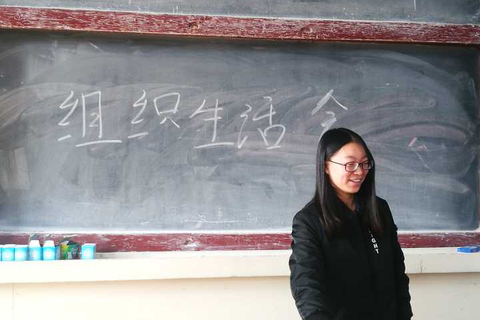 组织生活会